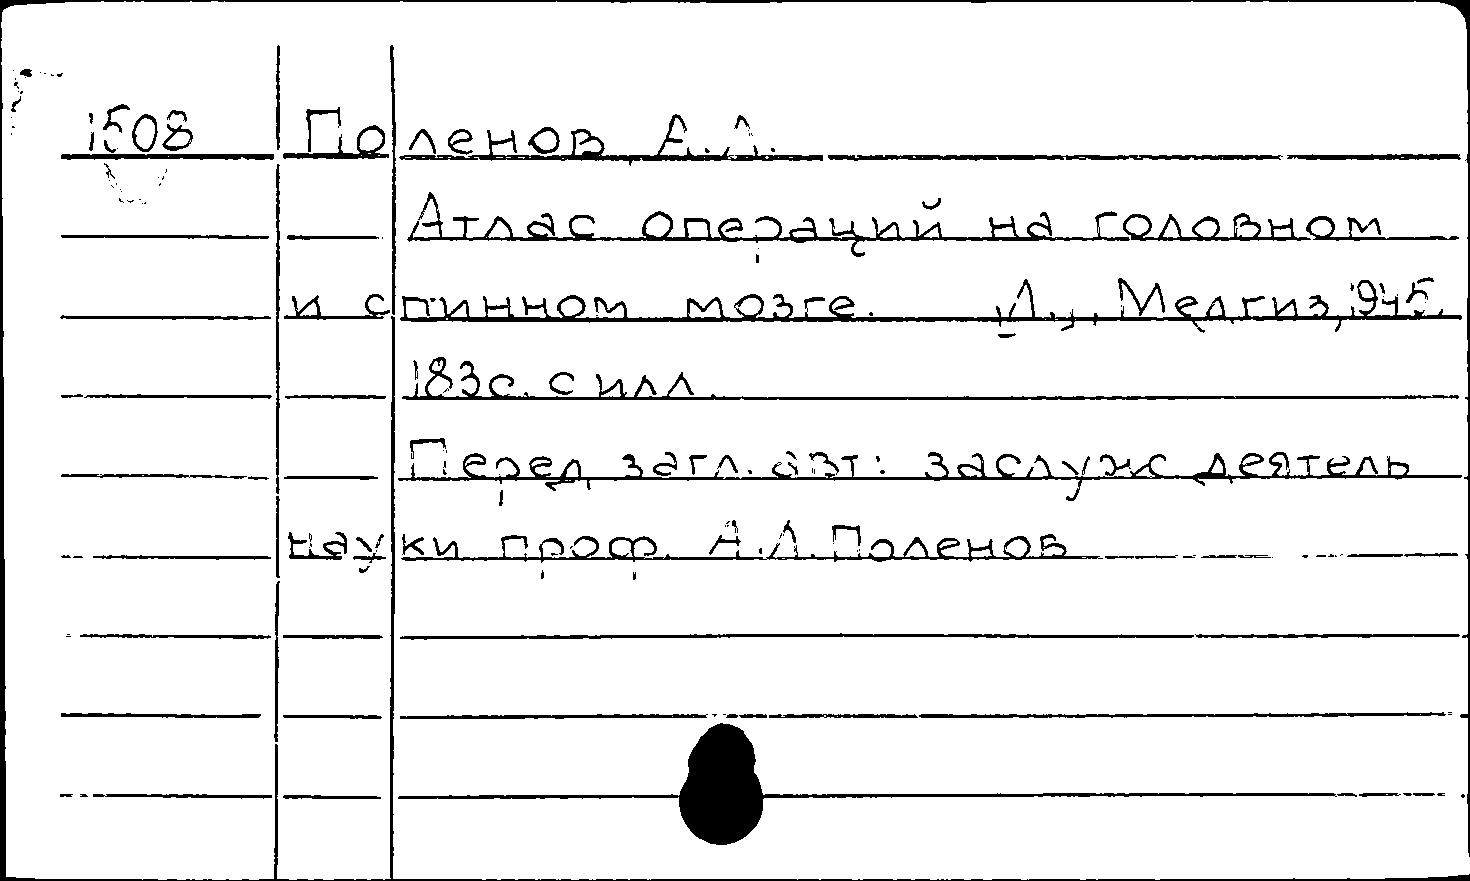 1508 Поленов А.Л.
Атлас операций на головном
и спинном мозге. Л., Медгиз, 1945.
183с. с илл.
Перед загл. авт: заслуж деятель
науки проф. А.Л. Поленов